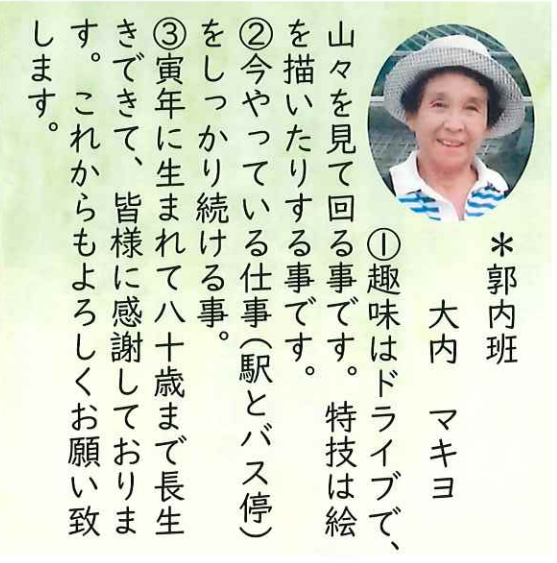 ＊郭内班
大内　マキヨ
①趣味はドライブで、
山々を見て回る事です。特技は絵
を描いたりする事です。
②今やっている仕事（駅とバス停）
をしっかり続ける事。
③寅年に生まれて八十歳まで長生
きできて、皆様に感謝しておりま
す。これからもよろしくお願い致
します。